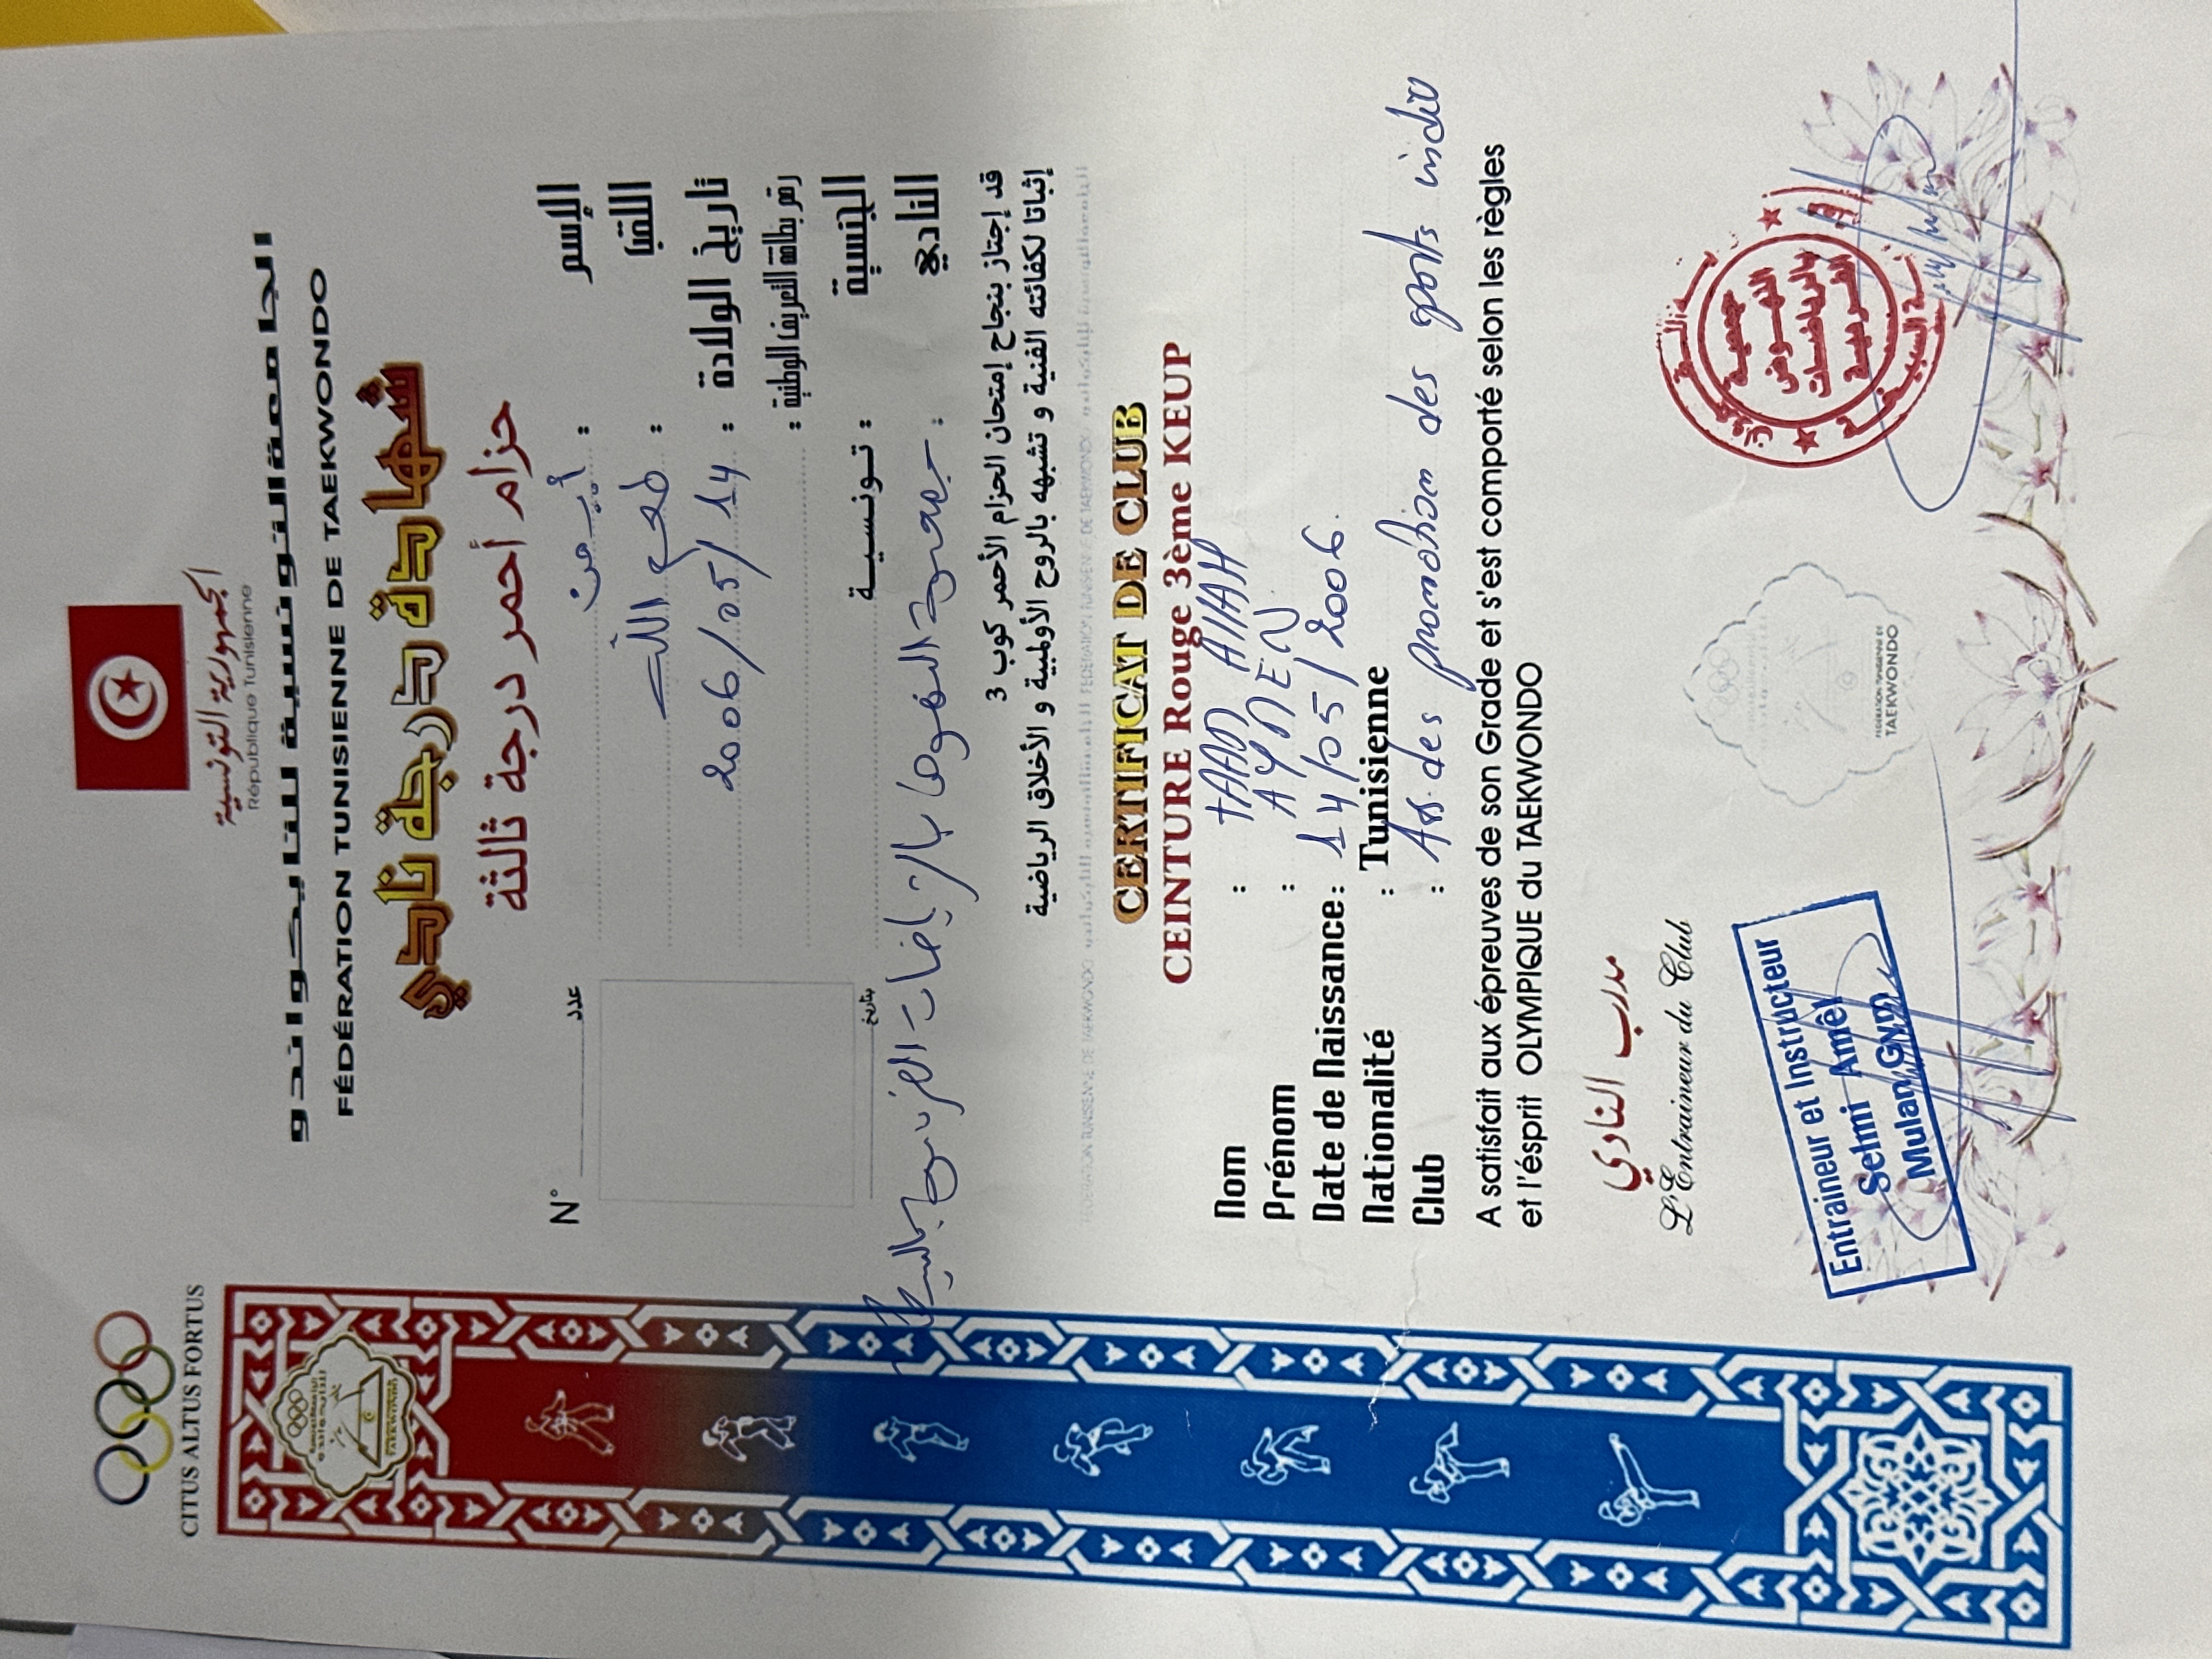 CITUS ALTUS FORTUS
الجمهورية التونسية
République Tunisienne
الجامعة التونسية للتايكواندو
FÉDÉRATION TUNISIENNE DE TAEKWONDO
شهادة درجة نادي
حزام أحمر درجة ثالثة
N° عدد
الإسم : أيمن
اللقب : طعم الله
تاريخ الولادة : 2006/05/14
رقم بطاقة التعريف الوطنية :
الجنسية : تونسية
بتاريخ
النادي : جمعية النهوض بالرياضات الفردية
قد إجتاز بنجاح إمتحان الحزام الأحمر كوب 3
إثباتا لكفائته الفنية و تشبهه بالروح الأولمبية و الأخلاق الرياضية
CERTIFICAT DE CLUB
CEINTURE Rouge 3ème KEUP
Nom : TAAM AllAH
Prénom : AYMEN
Date de Naissance : 14/05/2006
Nationalité : Tunisienne
Club : Ass. des promotion des sports indiv
A satisfait aux épreuves de son Grade et s'est comporté selon les règles
et l'ésprit OLYMPIQUE du TAEKWONDO
مدرب النادي
L'Entraineur du Club
Entraineur et Instructeur
Selmi Amel
Mulan Gym
جمعية
النهوض
بالرياضات
الفردية
TAEKWONDO